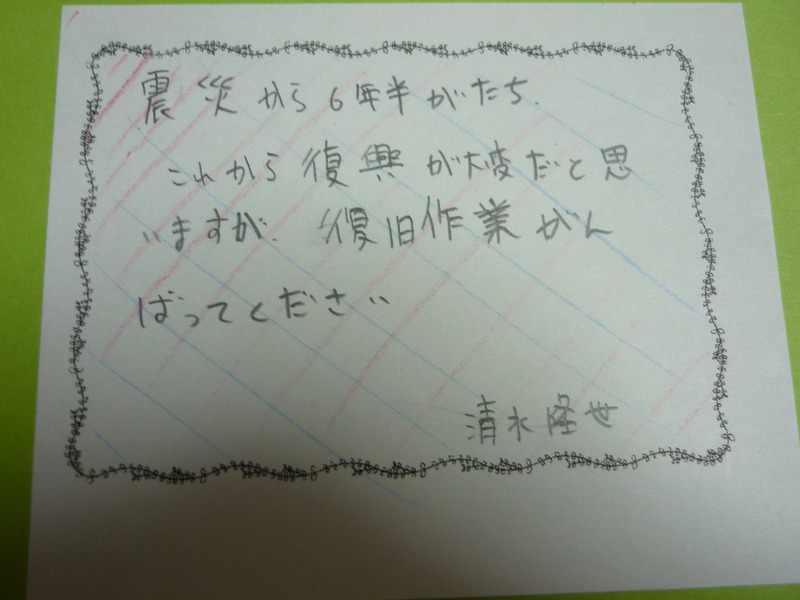 震災から6年半がたち、
これから復興が大変だと思
いますが、復旧作業がん
ばってください
清水隆世